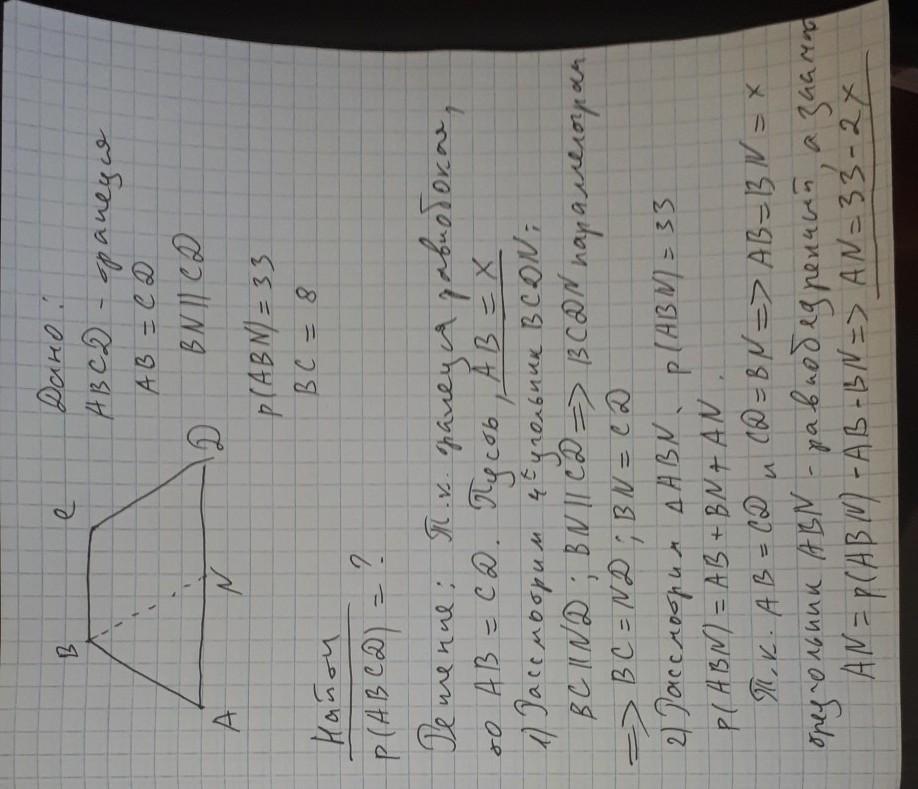 B C
A N D
Дано:
ABCD - трапеция
AB = CD
BN || CD
p(ABN) = 33
BC = 8
Найти
p(ABCD) = ?
Решение: Т.к. трапеция равнобокая,
то AB = CD. Пусть, AB = x
1) Рассмотрим 4ёугольник BCDN:
BC || ND; BN || CD => BCDN параллелограм
=> BC = ND; BN = CD
2) Рассмотрим △ABN, p(ABN) = 33
p(ABN) = AB + BN + AN.
Т.к. AB = CD и CD = BN => AB = BN = x
треугольник ABN - равнобедренный, а значит
AN = p(ABN) - AB + BN => AN = 33 - 2x